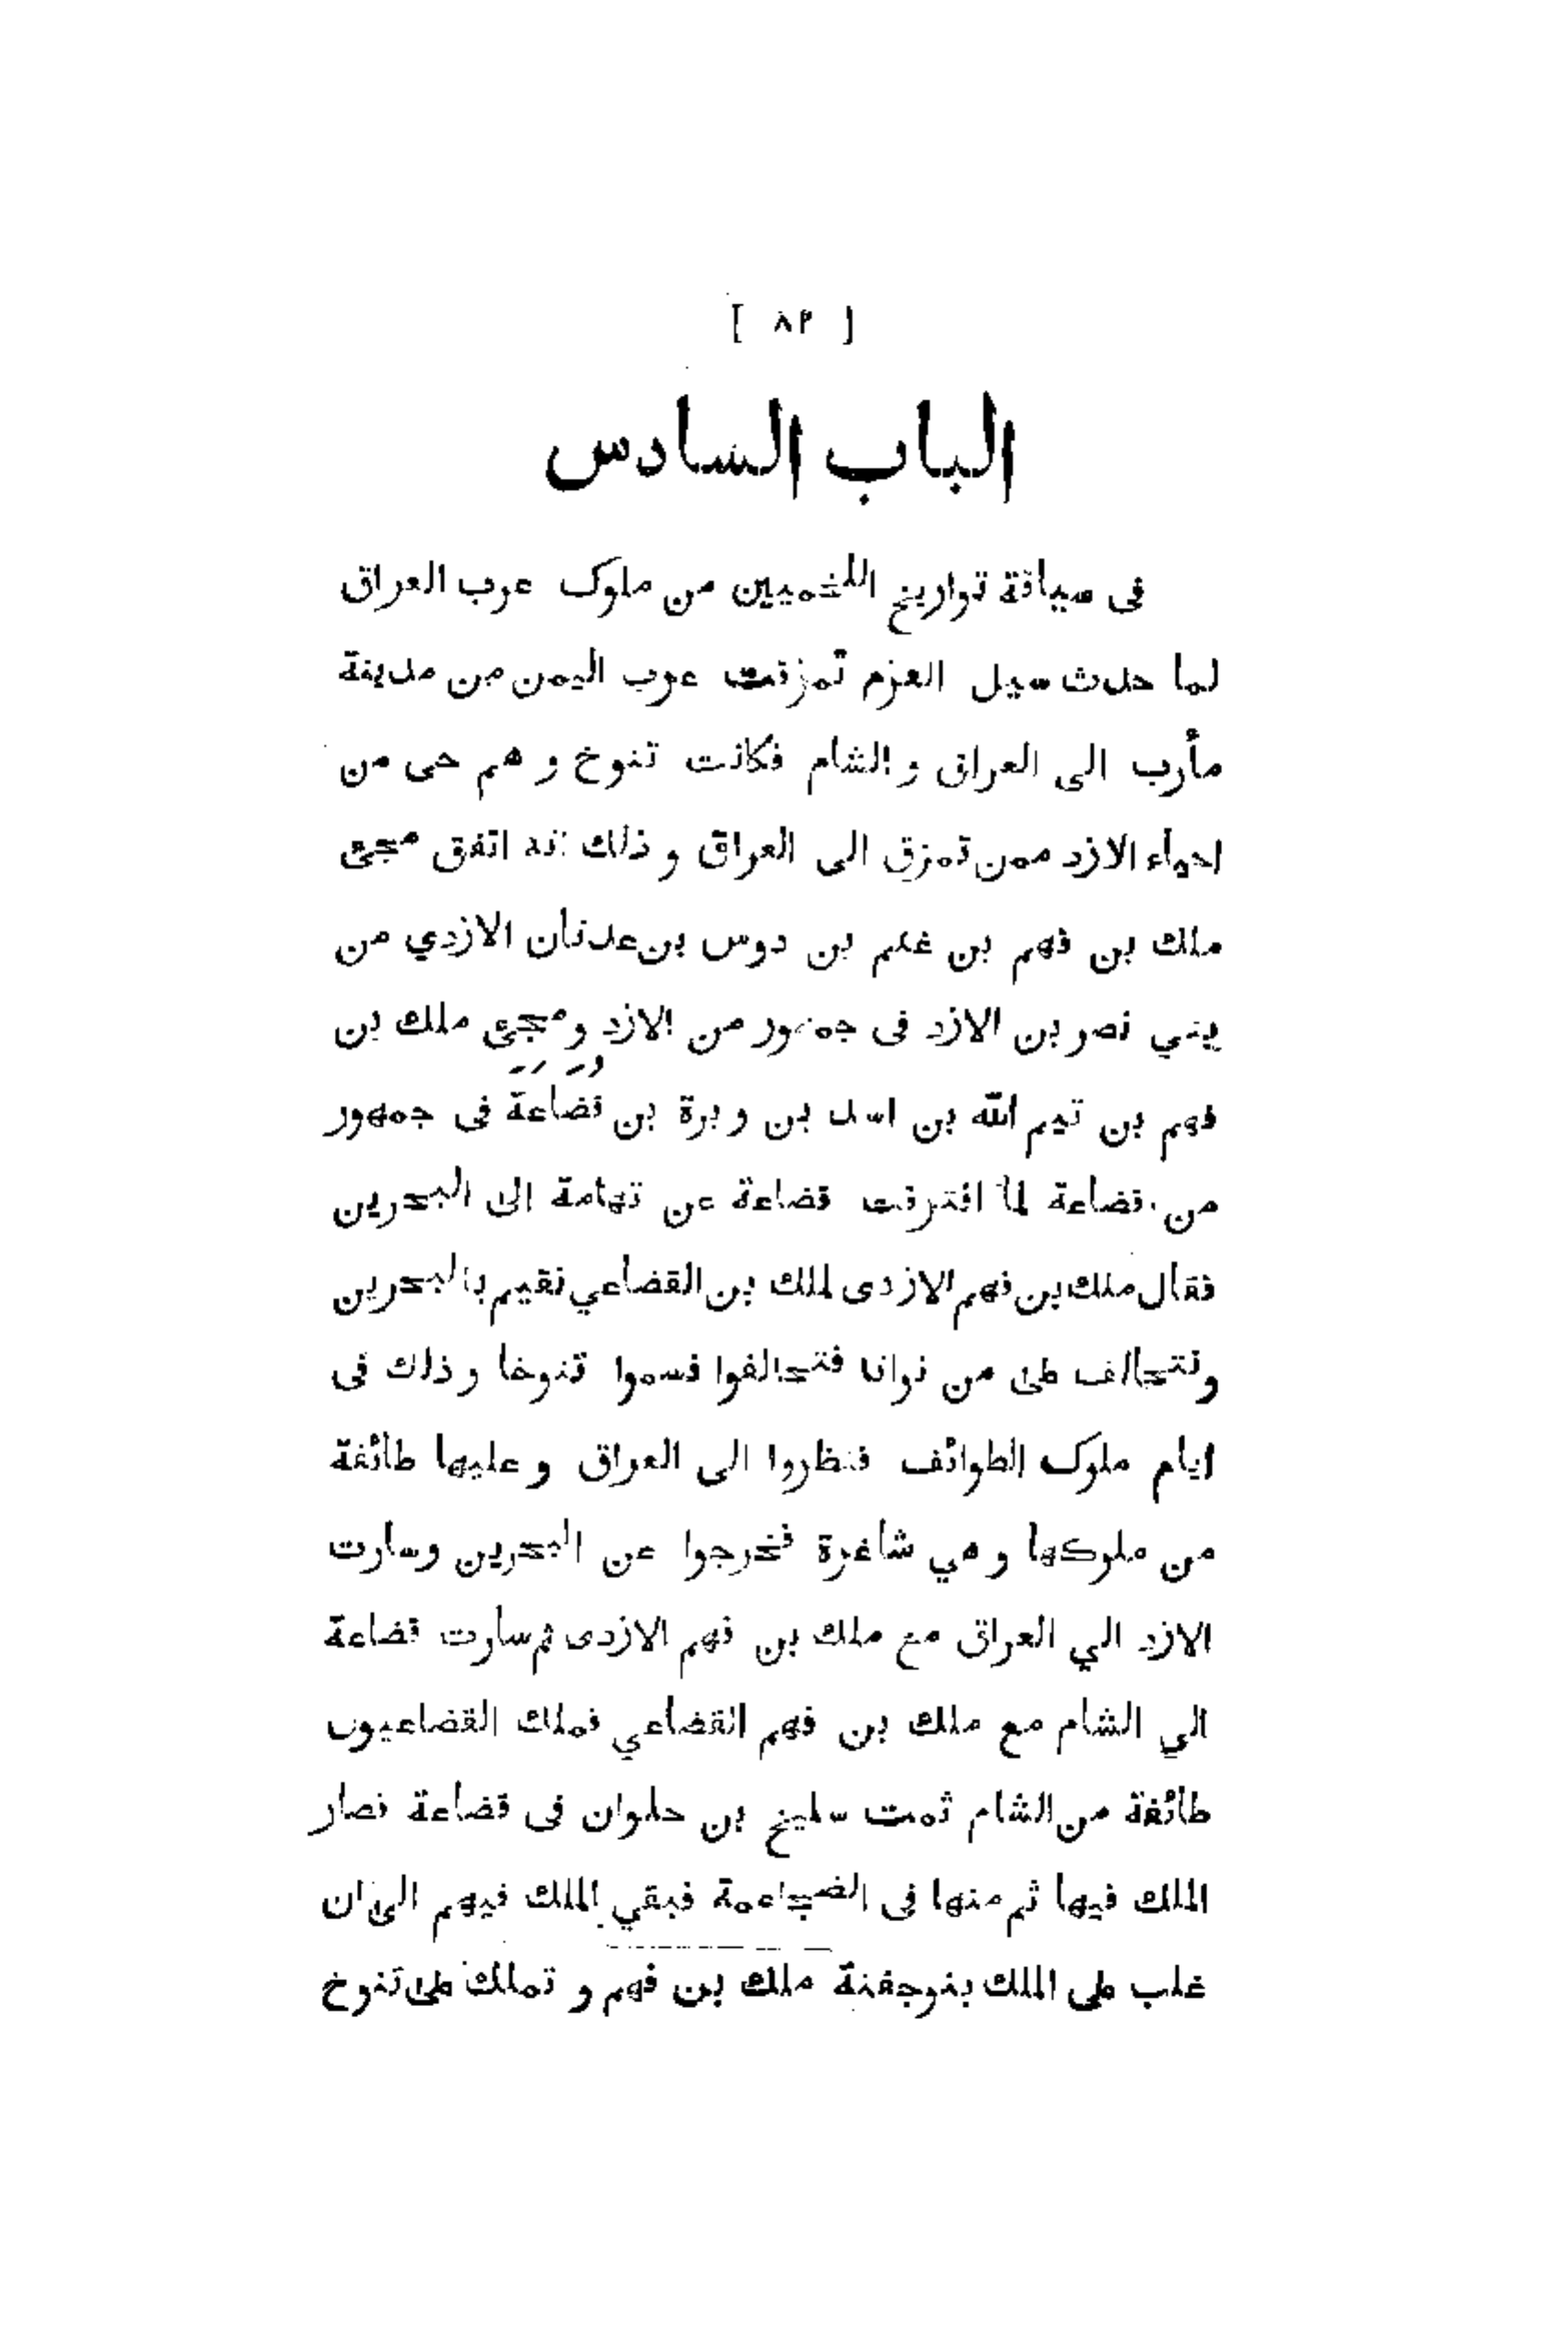 [ ٨٢ ]
الباب السادس
فى سياقة تواريخ اللخميين من ملوك عرب العراق
لما حدث سيل العزم تمزقت عرب اليمن من مدينة
مأرب الى العراق و الشام فكانت تنوخ و هم حى من
احياء الازد ممن تمزق الى العراق و ذلك انه اتفق مجئ
ملك بن فهم بن غنم بن دوس بن عدنان الازدي من
بني نصر بن الازد فى جمهور من الازد و مجئ ملك بن
فهم بن تيم الله بن اسد بن وبرة بن قُضَاعَة فى جمهور
من قضاعة لما افترقت قضاعة عن تهامة الى البحرين
فقال ملك بن فهم الازدى لملك بن القضاعي نقيم بالبحرين
ونتحالف على من نوانا فتحالفوا فسموا تنوخا و ذلك فى
ايام ملوك الطوائف فنظروا الى العراق و عليها طائفة
من ملوكها و هي شاغرة فخرجوا عن البحرين وسارت
الازد الي العراق مع ملك بن فهم الازدى ثم سارت قضاعة
الي الشام مع ملك بن فهم القضاعي فملك القضاعيون
طائفة من الشام ثمت سليخ بن حلوان فى قضاعة فصار
الملك فيها ثم منها فى الضجاعمة فبقي الملك فيهم الى ان
غلب على الملك بنوجفنة ملك بن فهم و تملك على تنوخ